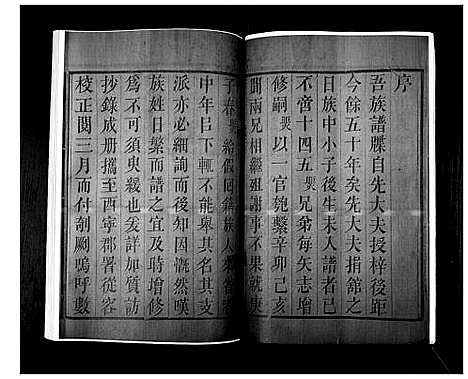 序
吾族譜牒自先大夫授梓後距
今餘五十年矣先大夫捐舘之
日族中小子後生未入譜者已
不啻十四五煚兄弟每矢志增
修嗣煚以一官匏繫辛卯己亥
間兩兄相繼殂謝事不果就庚
子春煚給假回籍族人來
中年巳下輒不能舉其支
派亦必細詢而後知因慨然嘆
族姓日繁而譜之宜及時增修
爲不可須臾緩也爰詳加質訪
抄錄成册攜至酉寧郡署從容
校正閱三月而付剞劂嗚呼數